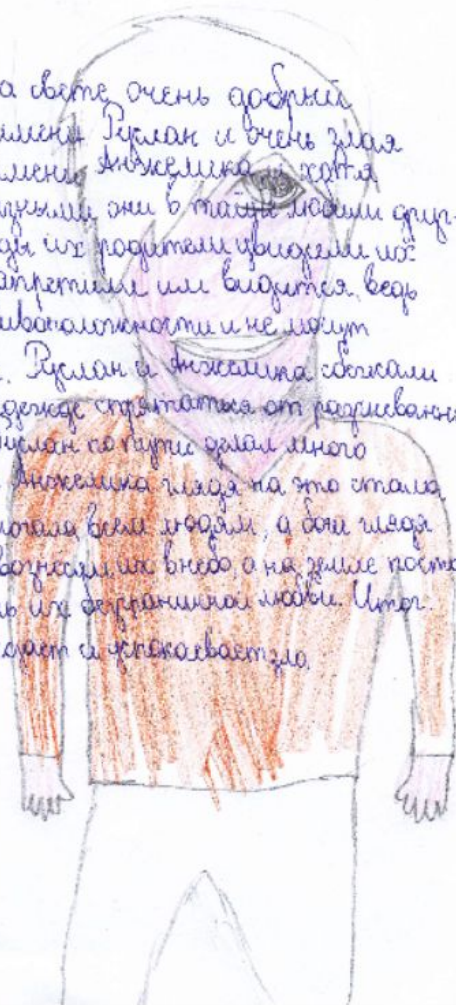 а свете очень добрый
имени Руслан и очень злая
имени Анжелика и хотя
зными они в тайне любили друг
их родители увидели их
апретили им видится, ведь
ивоположности и не могут
Руслан и Анжелика сбежали
адежде спрятаться от разгневанн
Руслан по пути делал много
Анжелика глядя на это стала
могала всем людям, а боги глядя
вознесли их в небо а на земле поста
ь их безграничной любви. Итог:
и успокаивает зло.